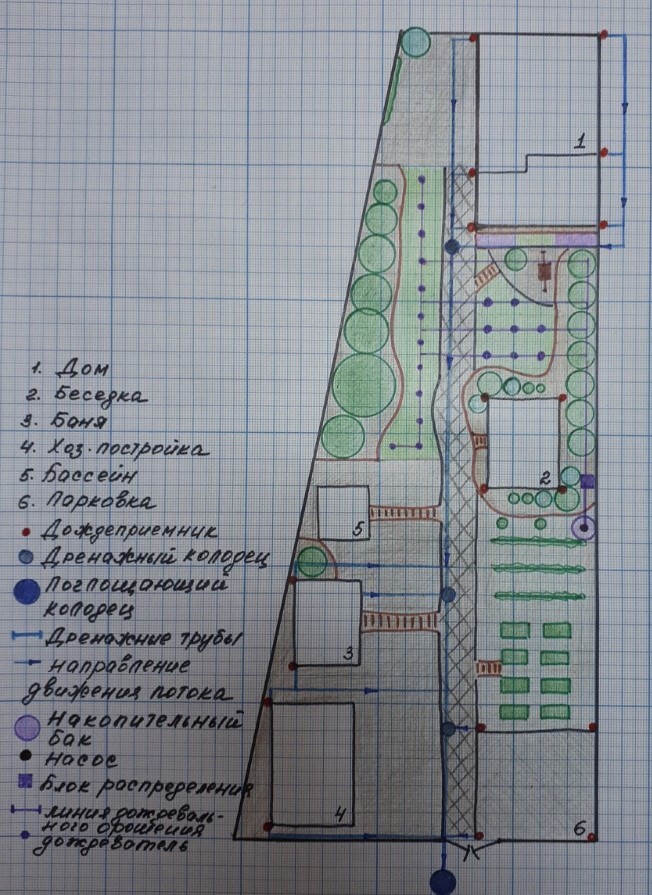 1
2
5
3
4
6
1. Дом
2. Беседка
3. Баня
4. Хоз. постройка
5. Бассейн
6. Парковка
Дождеприемник
Дренажный колодец
Поглощающий
колодец
Дренажные трубы
направление
движения потока
Накопительный
бак
Насос
Блок распределения
линия дождеваль-
ного орошения
дождеватель